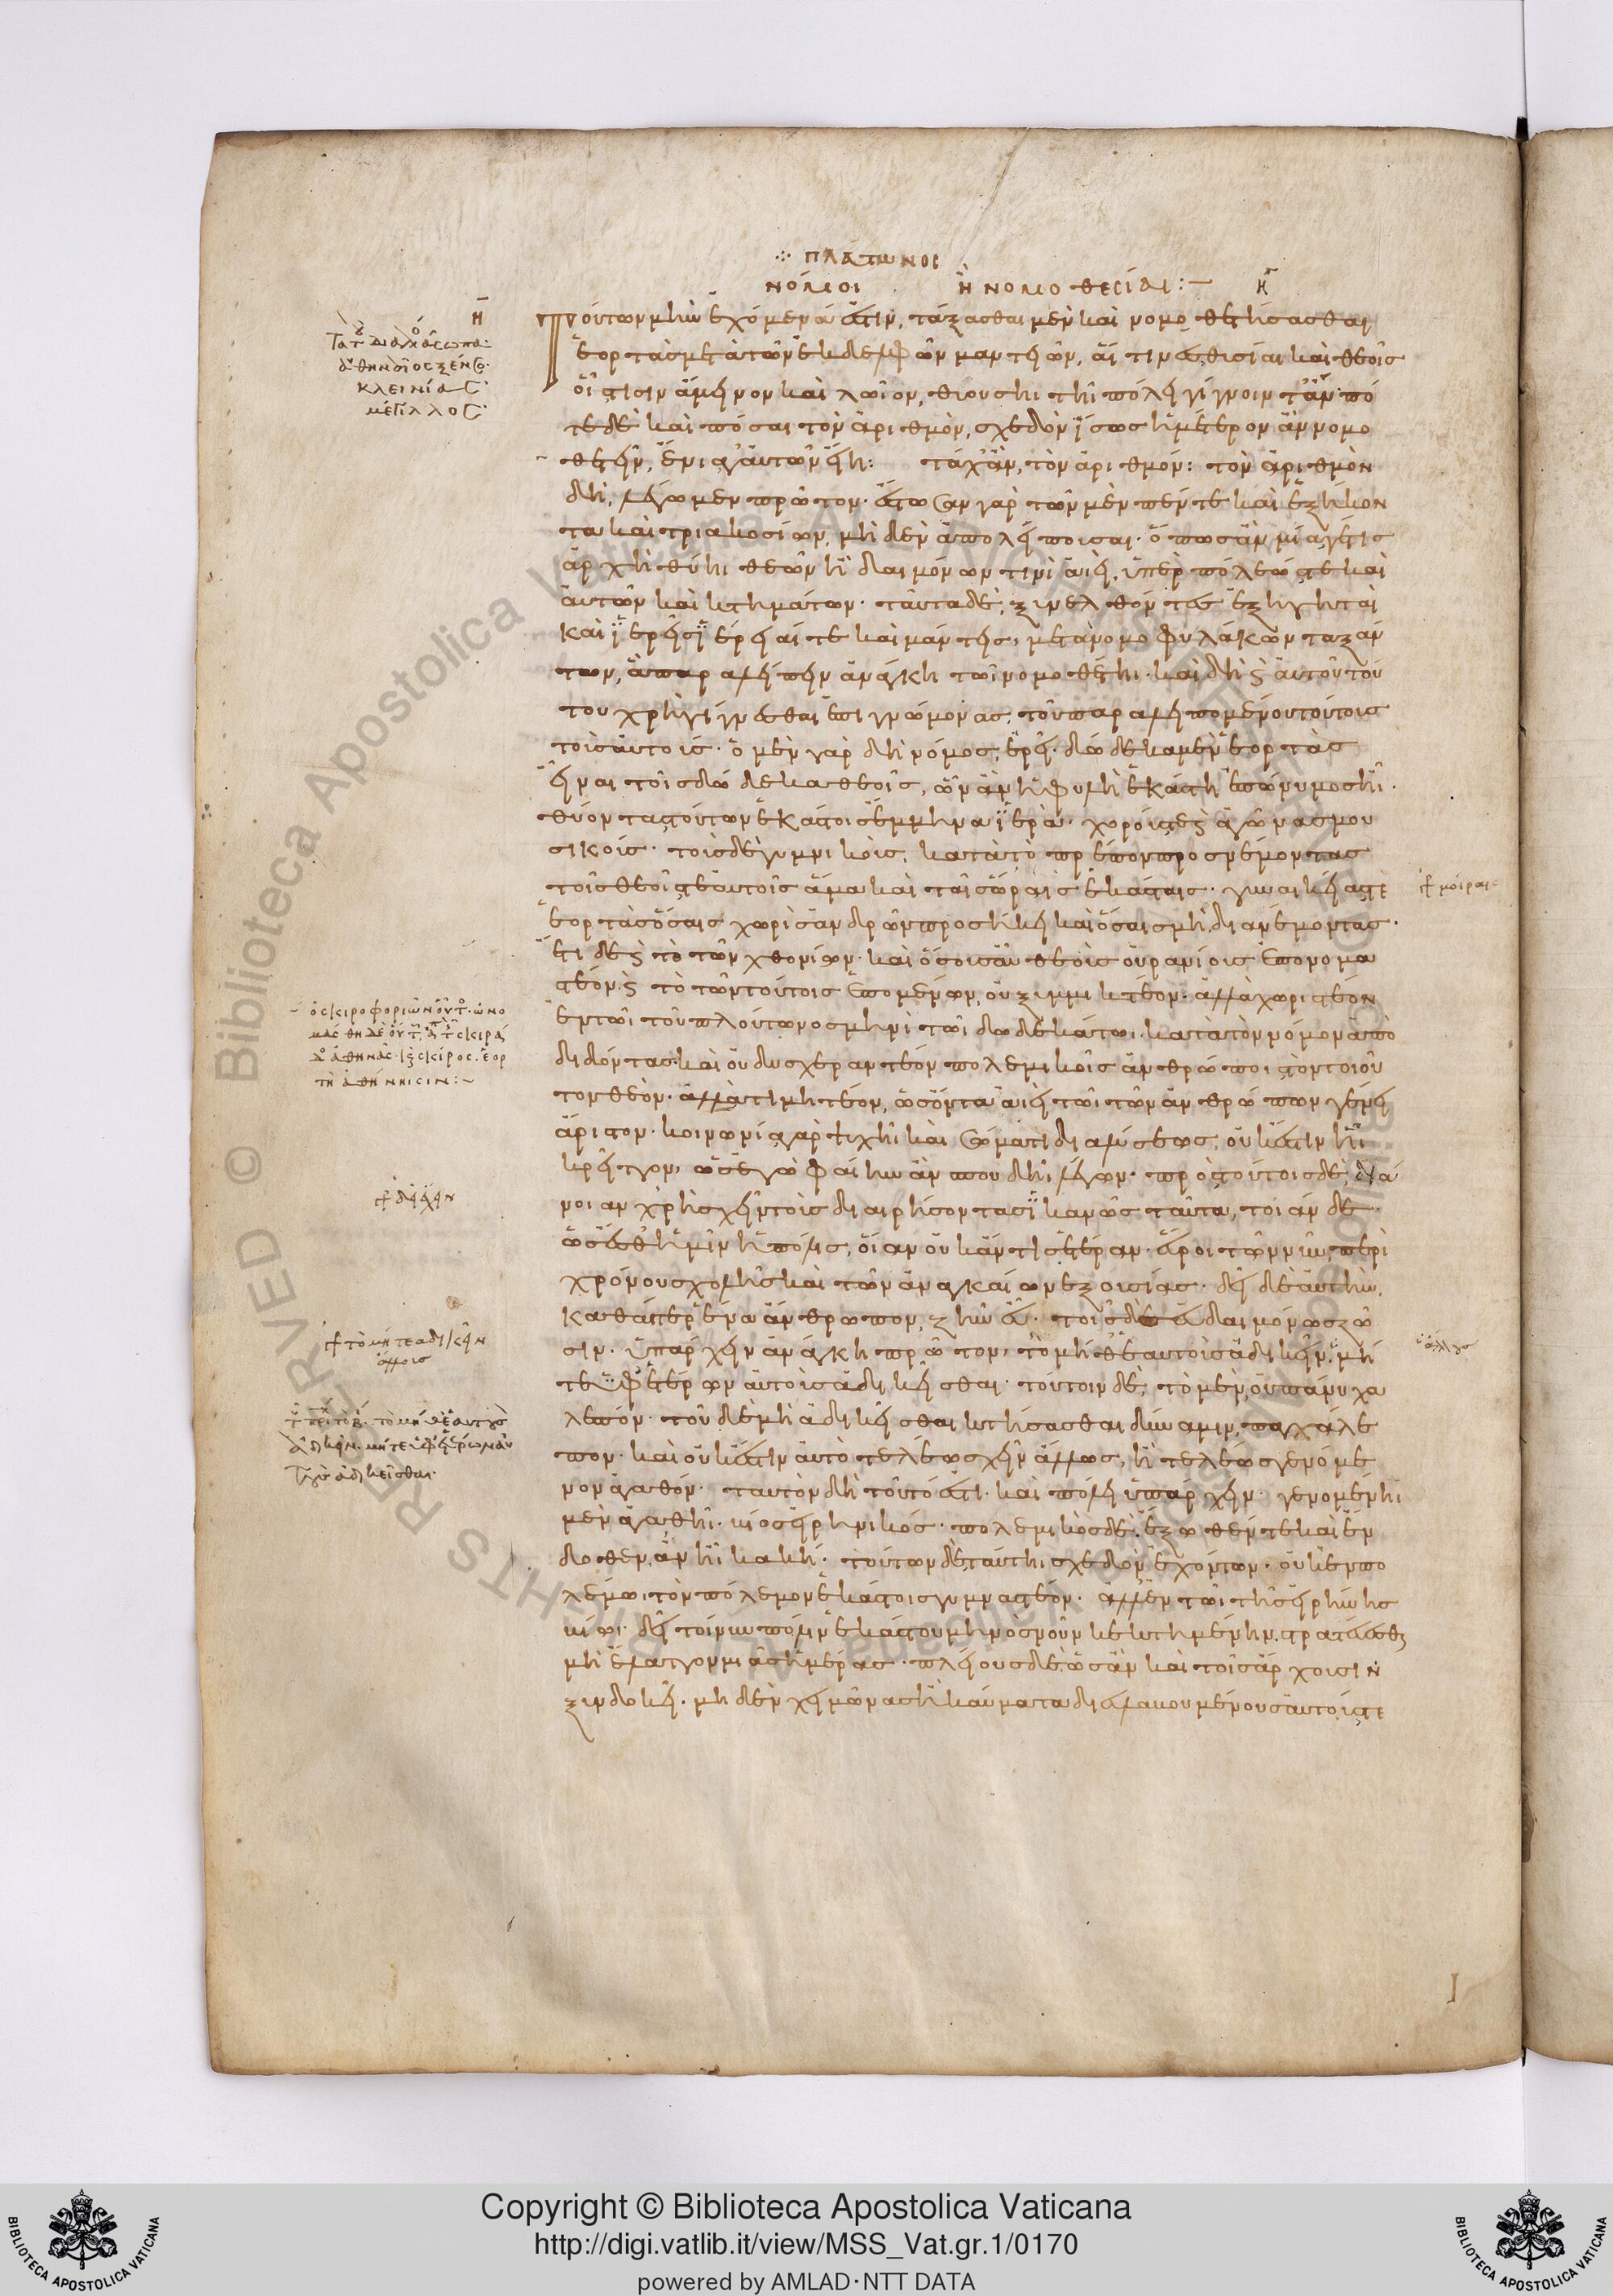 ΠΛΑΤΩΝΟΣ
ΝΟΜΟΙ Ἢ ΝΟΜΟΘΕΣΙΑΙ :— Η
Η
Τὰ τοῦ διαλόγου πρόσωπα
ἀθηναῖος ξένος
κλεινίας
μέγιλλος
Τούτων μὴν ἐχόμενά ἐστιν, τάξασθαι μὲν καὶ νομοθετήσασθαι
ἑορτὰς μετὰ τῶν ἐκ δελφῶν μαντειῶν, αἵτινες θυσίαι καὶ θεοῖς
οἷστισιν ἄμεινον καὶ λῷον, θυούσηι τῆι πόλει γίγνοιντ' ἄν· πό
τε δὲ καὶ πόσαι τὸν ἀριθμὸν, σχεδὸν ἴσως ἡμέτερον ἂν νομο
θετεῖν, ἔνιά γ' αὐτῶν εἴη: τάχ' ἂν, τὸν ἀριθμόν: τὸν ἀριθμὸν
δὴ, λέγωμεν πρῶτον· ἔστωσαν γὰρ τῶν μὲν πέντε καὶ ἑξήκον
τα καὶ τριακοσίων, μηδὲν ἀπολείπουσαι· ὅπως ἂν μία γέ τις
ἀρχὴ θύηι θεῶν ἢ δαιμόνων τινὶ ἀεὶ, ὑπὲρ πόλεώς τε καὶ
αὐτῶν καὶ κτημάτων· ταῦτα δὲ, ξυνελθόντες ἐξηγηταὶ
καὶ ἱερεῖς ἱέρειαί τε καὶ μάντεις, μετὰ νομοφυλάκων ταξάν
των, ἃ παραλείπειν ἀνάγκη τῶι νομοθέτηι· καὶ δὴ καὶ αὐτοῦ τού
του χρὴ γίγνεσθαι ἐπιγνώμονας, τοῦ παραλειπομένου τούτους
τοὺς αὐτούς· ὁ μὲν γὰρ δὴ νόμος, ἐρεῖ· δώδεκα μὲν ἑορτὰς
εἶναι τοῖς δώδεκα θεοῖς, ὧν ἂν ἡ φυλὴ ἑκάστη ἐπώνυμος ἦι·
θύοντας τούτων ἑκάστοις ἔμμηνα ἱερά· χορούς τε καὶ ἀγῶνας μου
σικούς· τοὺς δὲ γυμνικούς, κατὰ τὸ πρέπον προσνέμοντας
τοῖς θεοῖς τε αὐτοῖς ἅμα καὶ ταῖς ὥραις ἑκάσταις· γυναικείας τε
μοίραις
ἑορτὰς ὅσαις χωρὶς ἀνδρῶν προσήκει καὶ ὅσαις μὴ, διανέμοντας·
ἔτι δὲ καὶ τὸ τῶν χθονίων· καὶ ὅσους αὖ θεοὺς οὐρανίους ἐπονομα
στέον καὶ τὸ τῶν τούτοις ἑπομένων, οὐ ξυμμικτέον· ἀλλὰ χωριστέον
ἐν τῶι τοῦ πλούτωνος μηνὶ τῶι δωδεκάτωι κατὰ τὸν νόμον ἀπο
διδόντας· καὶ οὐ δυσχεραντέον πολεμικοῖς ἀνθρώποις τὸν τοιοῦ
τον θεὸν· ἀλλὰ τιμητέον, ὡς ὄντα ἀεὶ τῶι τῶν ἀνθρώπων γένει
ἄριστον· κοινωνία γὰρ ψυχῆι καὶ σώματι διαλύσεως, οὐκ ἔστιν ἧι
κρεῖττον, ὡς ἐγὼ φαίην ἂν σπουδῆι λέγων· πρὸς τούτοις δὲ, διά
ἔχειν
νοιαν χρὴ σχεῖν τοὺς διαιρήσοντας ἱκανῶς ταῦτα, τοιάνδε
ὡς ἔσθ' ἡμῖν ἡ πόλις, οἵαν οὐκ ἄν τις ἑτέραν· εὕροι τῶν νῦν, περὶ
χρόνου σχολῆς καὶ τῶν ἀναγκαίων ἐξουσίας· δεῖ δὲ αὐτὴν,
καθάπερ ἕνα ἄνθρωπον, ζῆν εὖ· τοῖς δὲ εὐδαιμόνως ζῶ
σιν· ὑπάρχειν ἀνάγκη πρῶτον, τὸ μήθ' ἑαυτοὺς ἀδικεῖν, μή
τὸ μήτε ἀδικεῖν
ἄλλους
ἀλλήλους
τε ὑφ' ἑτέρων αὐτοὺς ἀδικεῖσθαι· τούτοιν δὲ, τὸ μὲν, οὐ πάνυ χα
λεπόν· τοῦ δὲ μὴ ἀδικεῖσθαι κτήσασθαι δύναμιν, παγχάλε
πον· καὶ οὐκ ἔστιν αὐτὸ τελέως σχεῖν ἄλλως, ἢ τελέως γενόμε
νον ἀγαθόν· ταυτὸν δὴ τοῦτό ἐστι· καὶ πόλει ὑπάρχειν· γενομένηι
μὲν ἀγαθῆι· βίος εἰρηνικός· πολεμικὸς δὲ, ἔξωθέν τε καὶ ἔν
δοθεν, ἂν ἦι κακή· τούτων δὲ ταύτηι σχεδὸν ἐχόντων· οὐκ ἐν πο
λέμωι τὸν πόλεμον ἑκάστοις γυμναστέον· ἀλλ' ἐν τῶι τῆς εἰρήνης
βίωι· δεῖ τοίνυν πόλιν ἑκάστου μηνὸς νοῦν κεκτημένην, στρατεύεσθαι
μὴ ἔλαττον μιᾶς ἡμέρας· πλείους δὲ ὡς ἂν καὶ τοῖς ἄρχουσιν
ξυνδοκῆι· μηδὲν χειμῶνας ἢ καύματα διευλαβουμένους αὐτούς τε
Copyright © Biblioteca Apostolica Vaticana
http://digi.vatlib.it/view/MSS_Vat.gr.1/0170
powered by AMLAD·NTT DATA
BIBLIOTECA APOSTOLICA VATICANA
BIBLIOTECA APOSTOLICA VATICANA